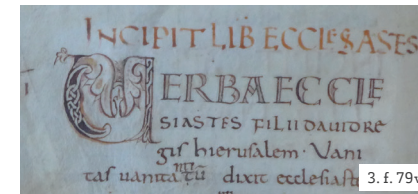 INCIPIT LIB ECCLESASES
UERBA ECCLE
SIASTES FILII DAUID RE
gis hierusalem · Vani
tas uanitatũ dixit ecclesiast
3. f. 79v